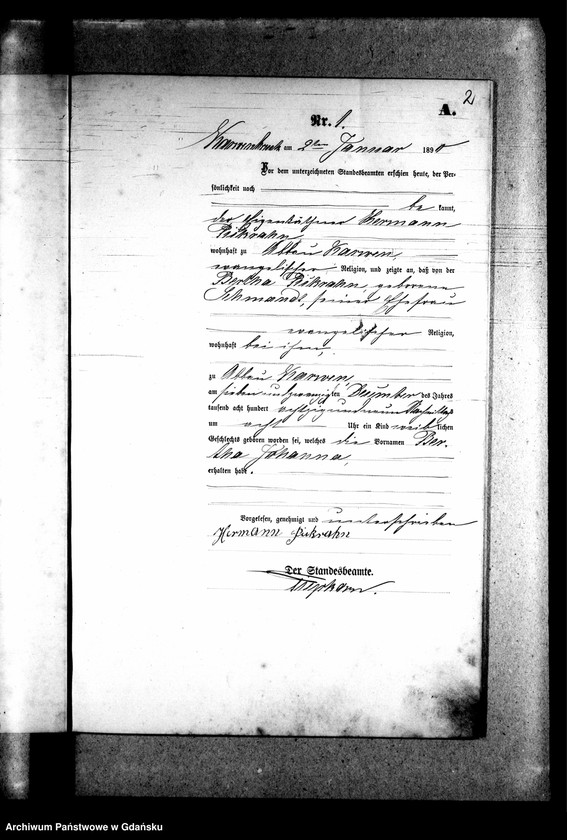 2
A.
Nr. 1.
Karwenbruch am 2ten Januar 1890
Vor dem unterzeichneten Standesbeamten erschien heute, der Per-
sönlichkeit nach
be kannt,
der Eigenthümer Hermann
wohnhaft zu Abbau Karwen,
evangelischer Religion, und zeigte an, daß von der
Bertha geborene
seiner Ehefrau
evangelischer Religion,
wohnhaft bei ihm,
zu Abbau Karwen,
am sieben und zwanzigsten Dezember des Jahres
tausend acht hundert achtzig und neun Nachmittags
um acht Uhr ein Kind weib lichen
Geschlechts geboren worden sei, welches die Vornamen Ber-
tha Johanna,
erhalten habe.
Vorgelesen, genehmigt und unterschrieben
Hermann
Der Standesbeamte.
Archiwum Państwowe w Gdańsku